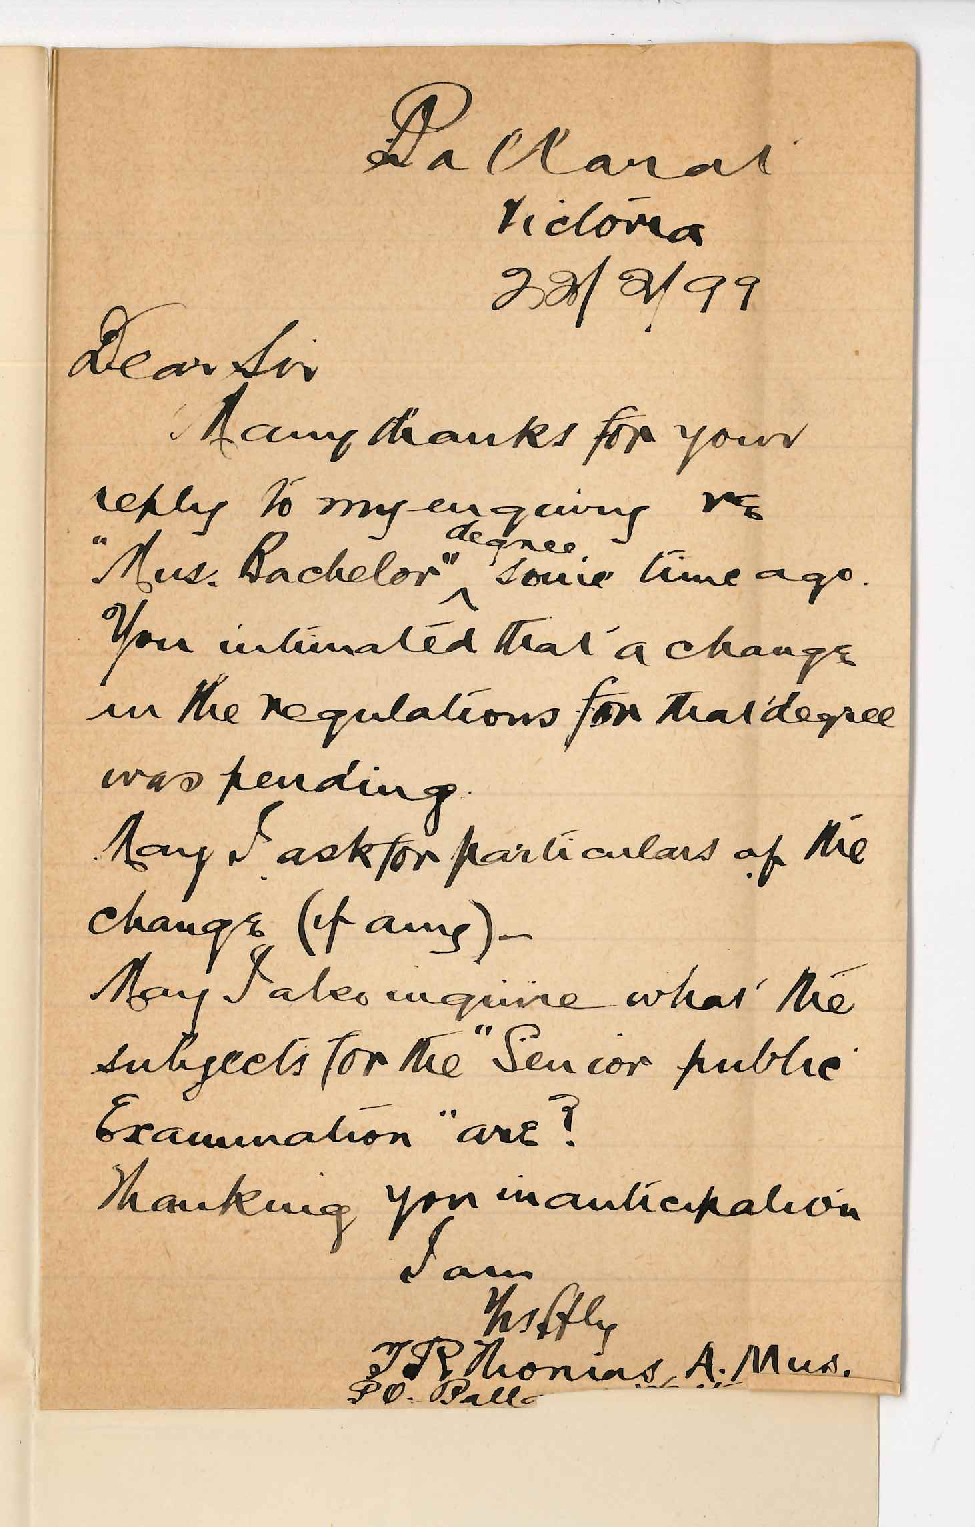 Ballarat
Victoria
22/2/99
Dear Sir
Many thanks for your
reply to my enquiry re
"Mus. Bachelor" degree some time ago.
You intimated that a change
in the regulations for that degree
was pending.
May I ask for particulars of the
change (if any)-
May I also inquire what the
subjects for the "Senior public
Examination" are?
Thanking you in anticipation
I am
Yrs ftly
T R Thomas A. Mus.
P.O. Balla